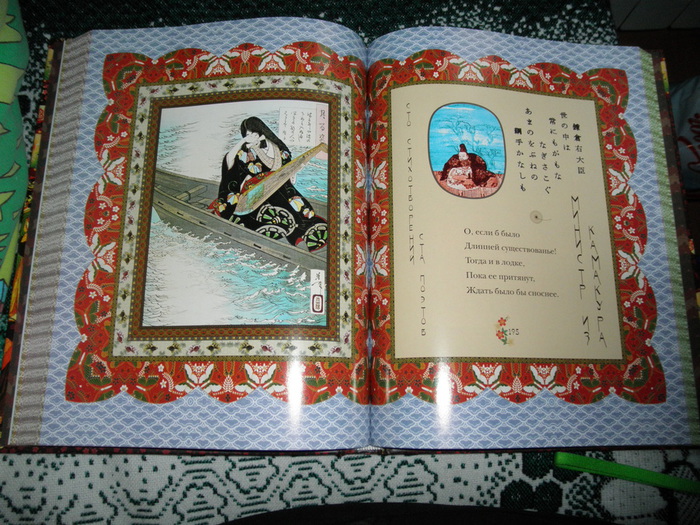 СТО СТИХОТВОРЕНИЙ
СТА ПОЭТОВ
鎌倉右大臣
世の中は
常にもがもな
なぎさこぐ
あまのをぶねの
綱手かなしも
МИНИСТР ИЗ
КАМАКУРА
О, если б было
Длинней существованье!
Тогда и в лодке,
Пока ее притянут,
Ждать было бы сноснее.